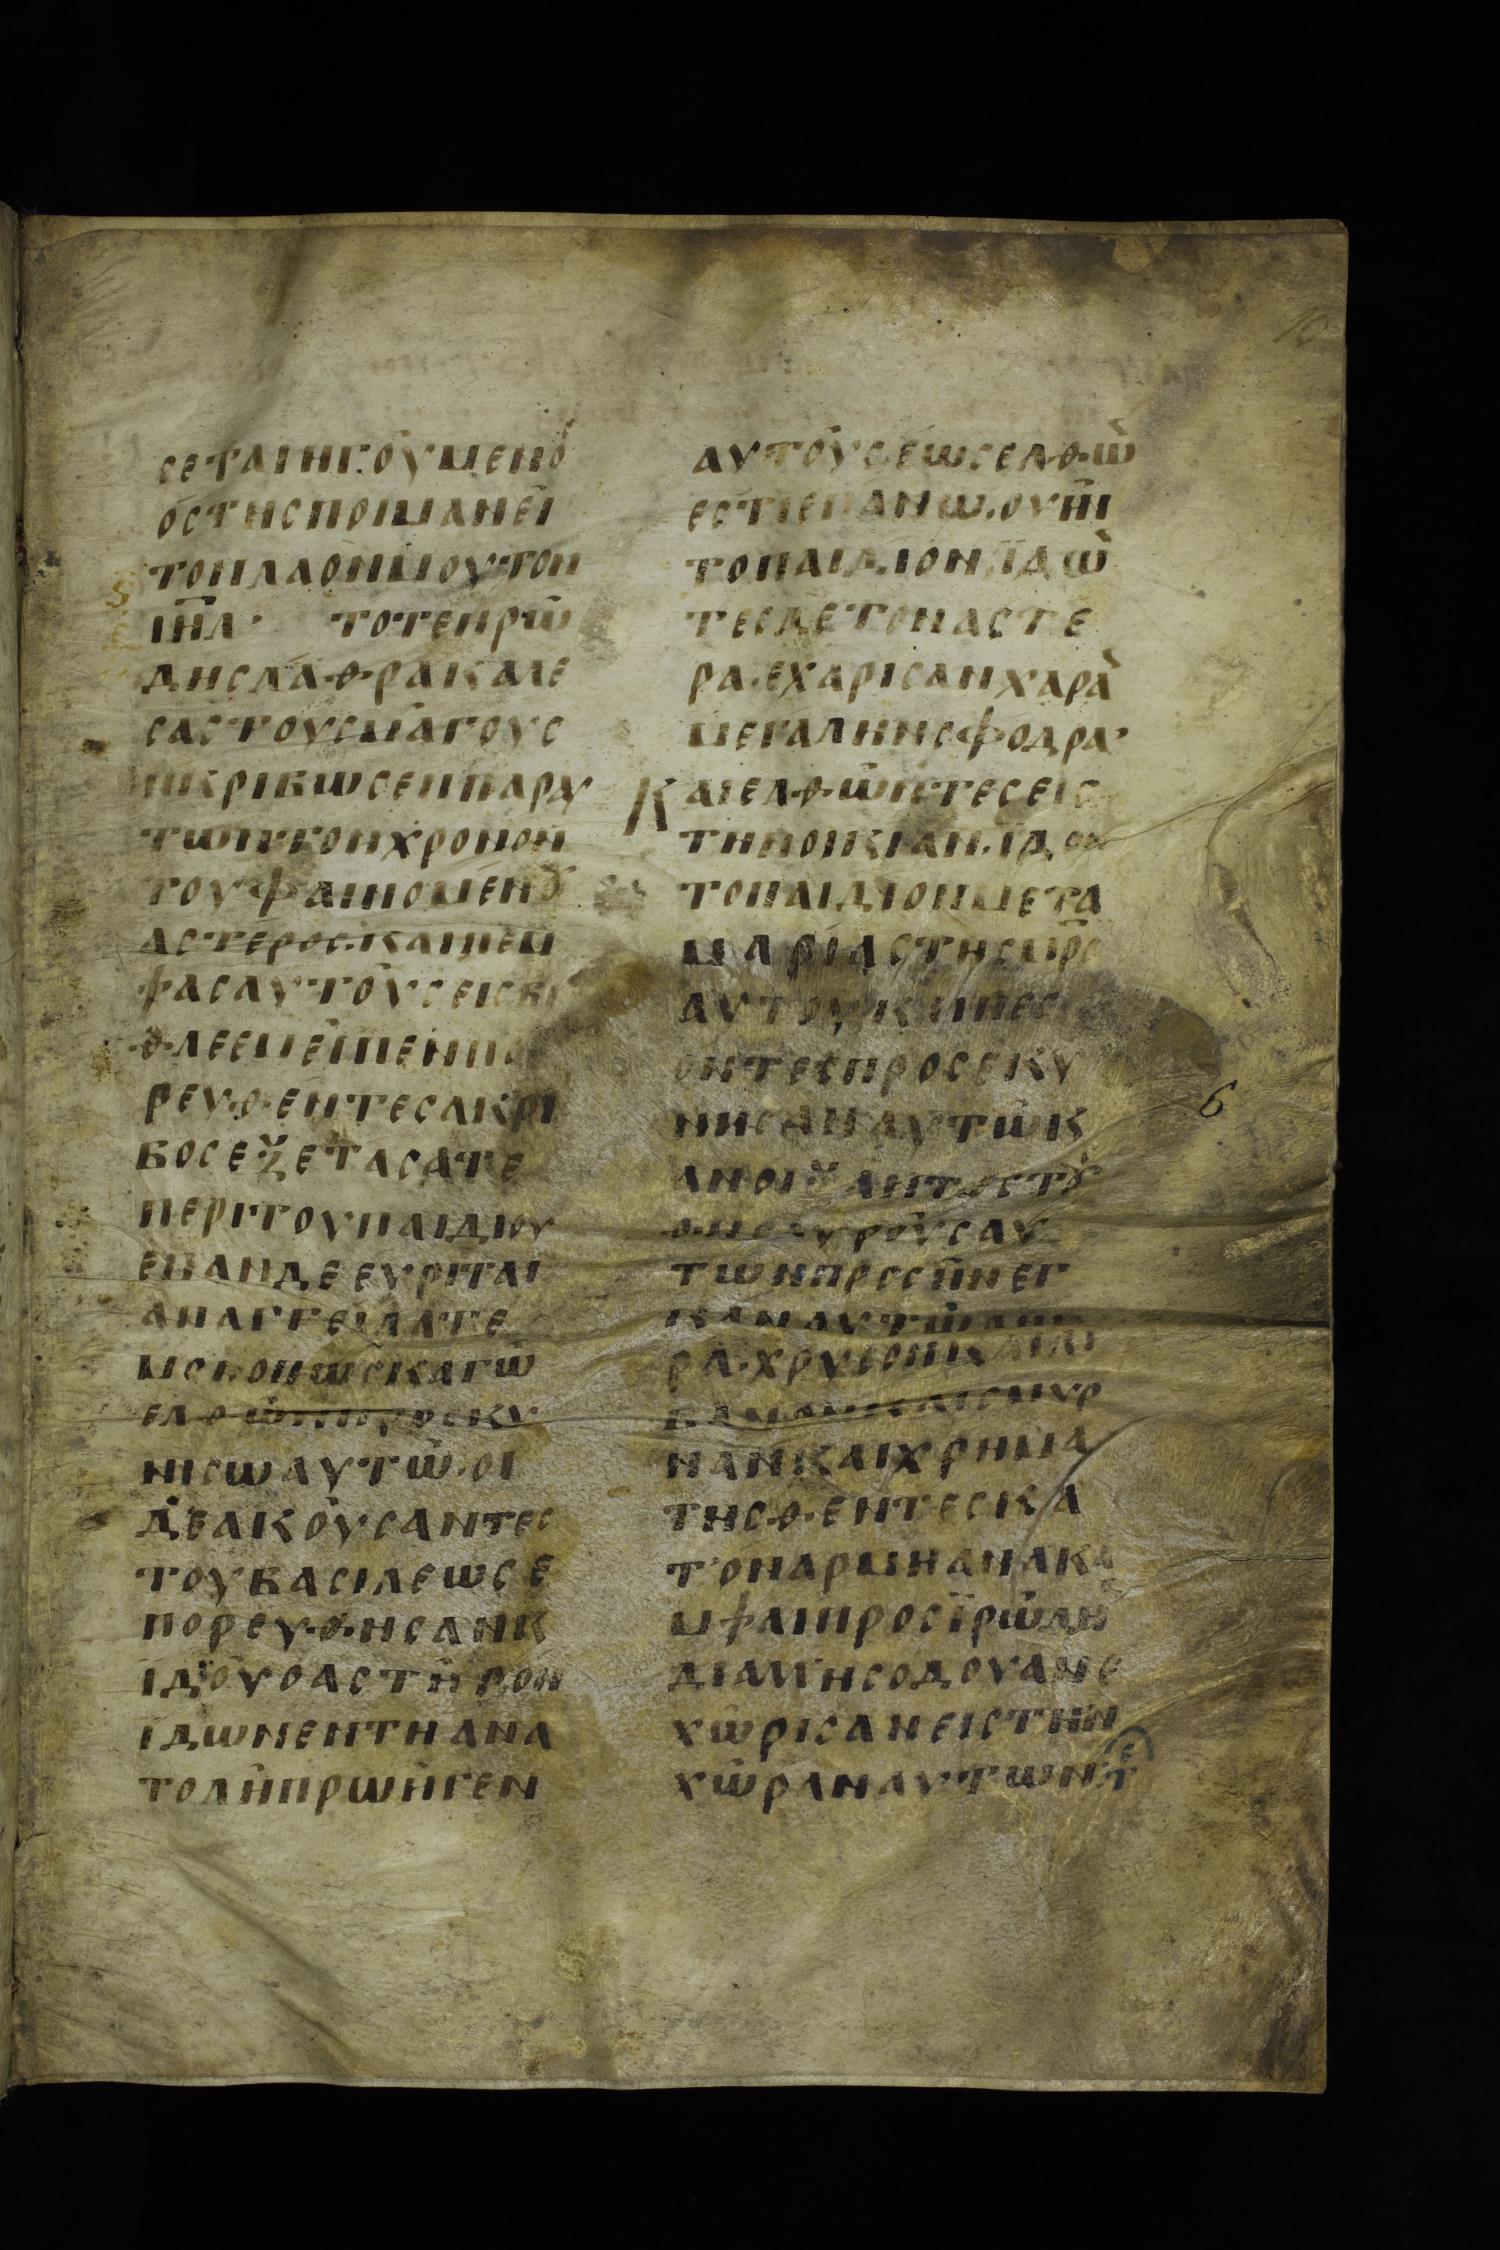 ϲεταιηγουμενο
οϲτηϲποιμανει
τονλαονμουτον
ιηλ· τοτεηρω
δηϲλαθρακαλε
ϲαϲτουϲμαγουϲ
ηκριβωϲενπαραυ
τωντονχρονον
τουφαινομενου
αϲτεροϲ·καιπεμ
ψαϲαυτουϲειϲβη
θλεεμειπενπο
ρευθεντεϲακρι
βοϲεξεταϲατε
περιτουπαιδιου
επανδεευριται
αναγγειλατε
μοιοπωϲκαγω
ελθωνπροϲκυ
νιϲωαυτω·οι
δεακουϲαντεϲ
τουβαϲιλεωϲε
πορευθηϲανκ
ιδουοαϲτηρον
ιδωνεντηανα
τοληπρωηγεν
αυτουϲεωϲελθω
εϲτιεπανω·ουηι
τοπαιδιον·ϊδω
τεϲδετοναϲτε
ρα·εχαριϲανχαρα
μεγαληνϲφοδρα·
Καιελθωντεϲειϲ
τηνοικιαν·ϊδον
τοπαιδιονμετα
μαριαϲτηϲμρϲ
αυτουκπεϲ
οντεϲπροϲεκυ
νηϲαναυτωκ
ανοιξαντεϲτου
θηϲαυρουϲαυ
τωνπροϲηνεγ
καναυτωδω
ρα·χρυϲονκαιλι
βανονκαιϲμυρ
νανκαιχρημα
τηϲθεντεϲκα
τοναρμηανακα
μψαιπροϲϊρωδη
διαληϲοδουανε
χωριϲανειϲτην
χωραναυτων·τε
10
6